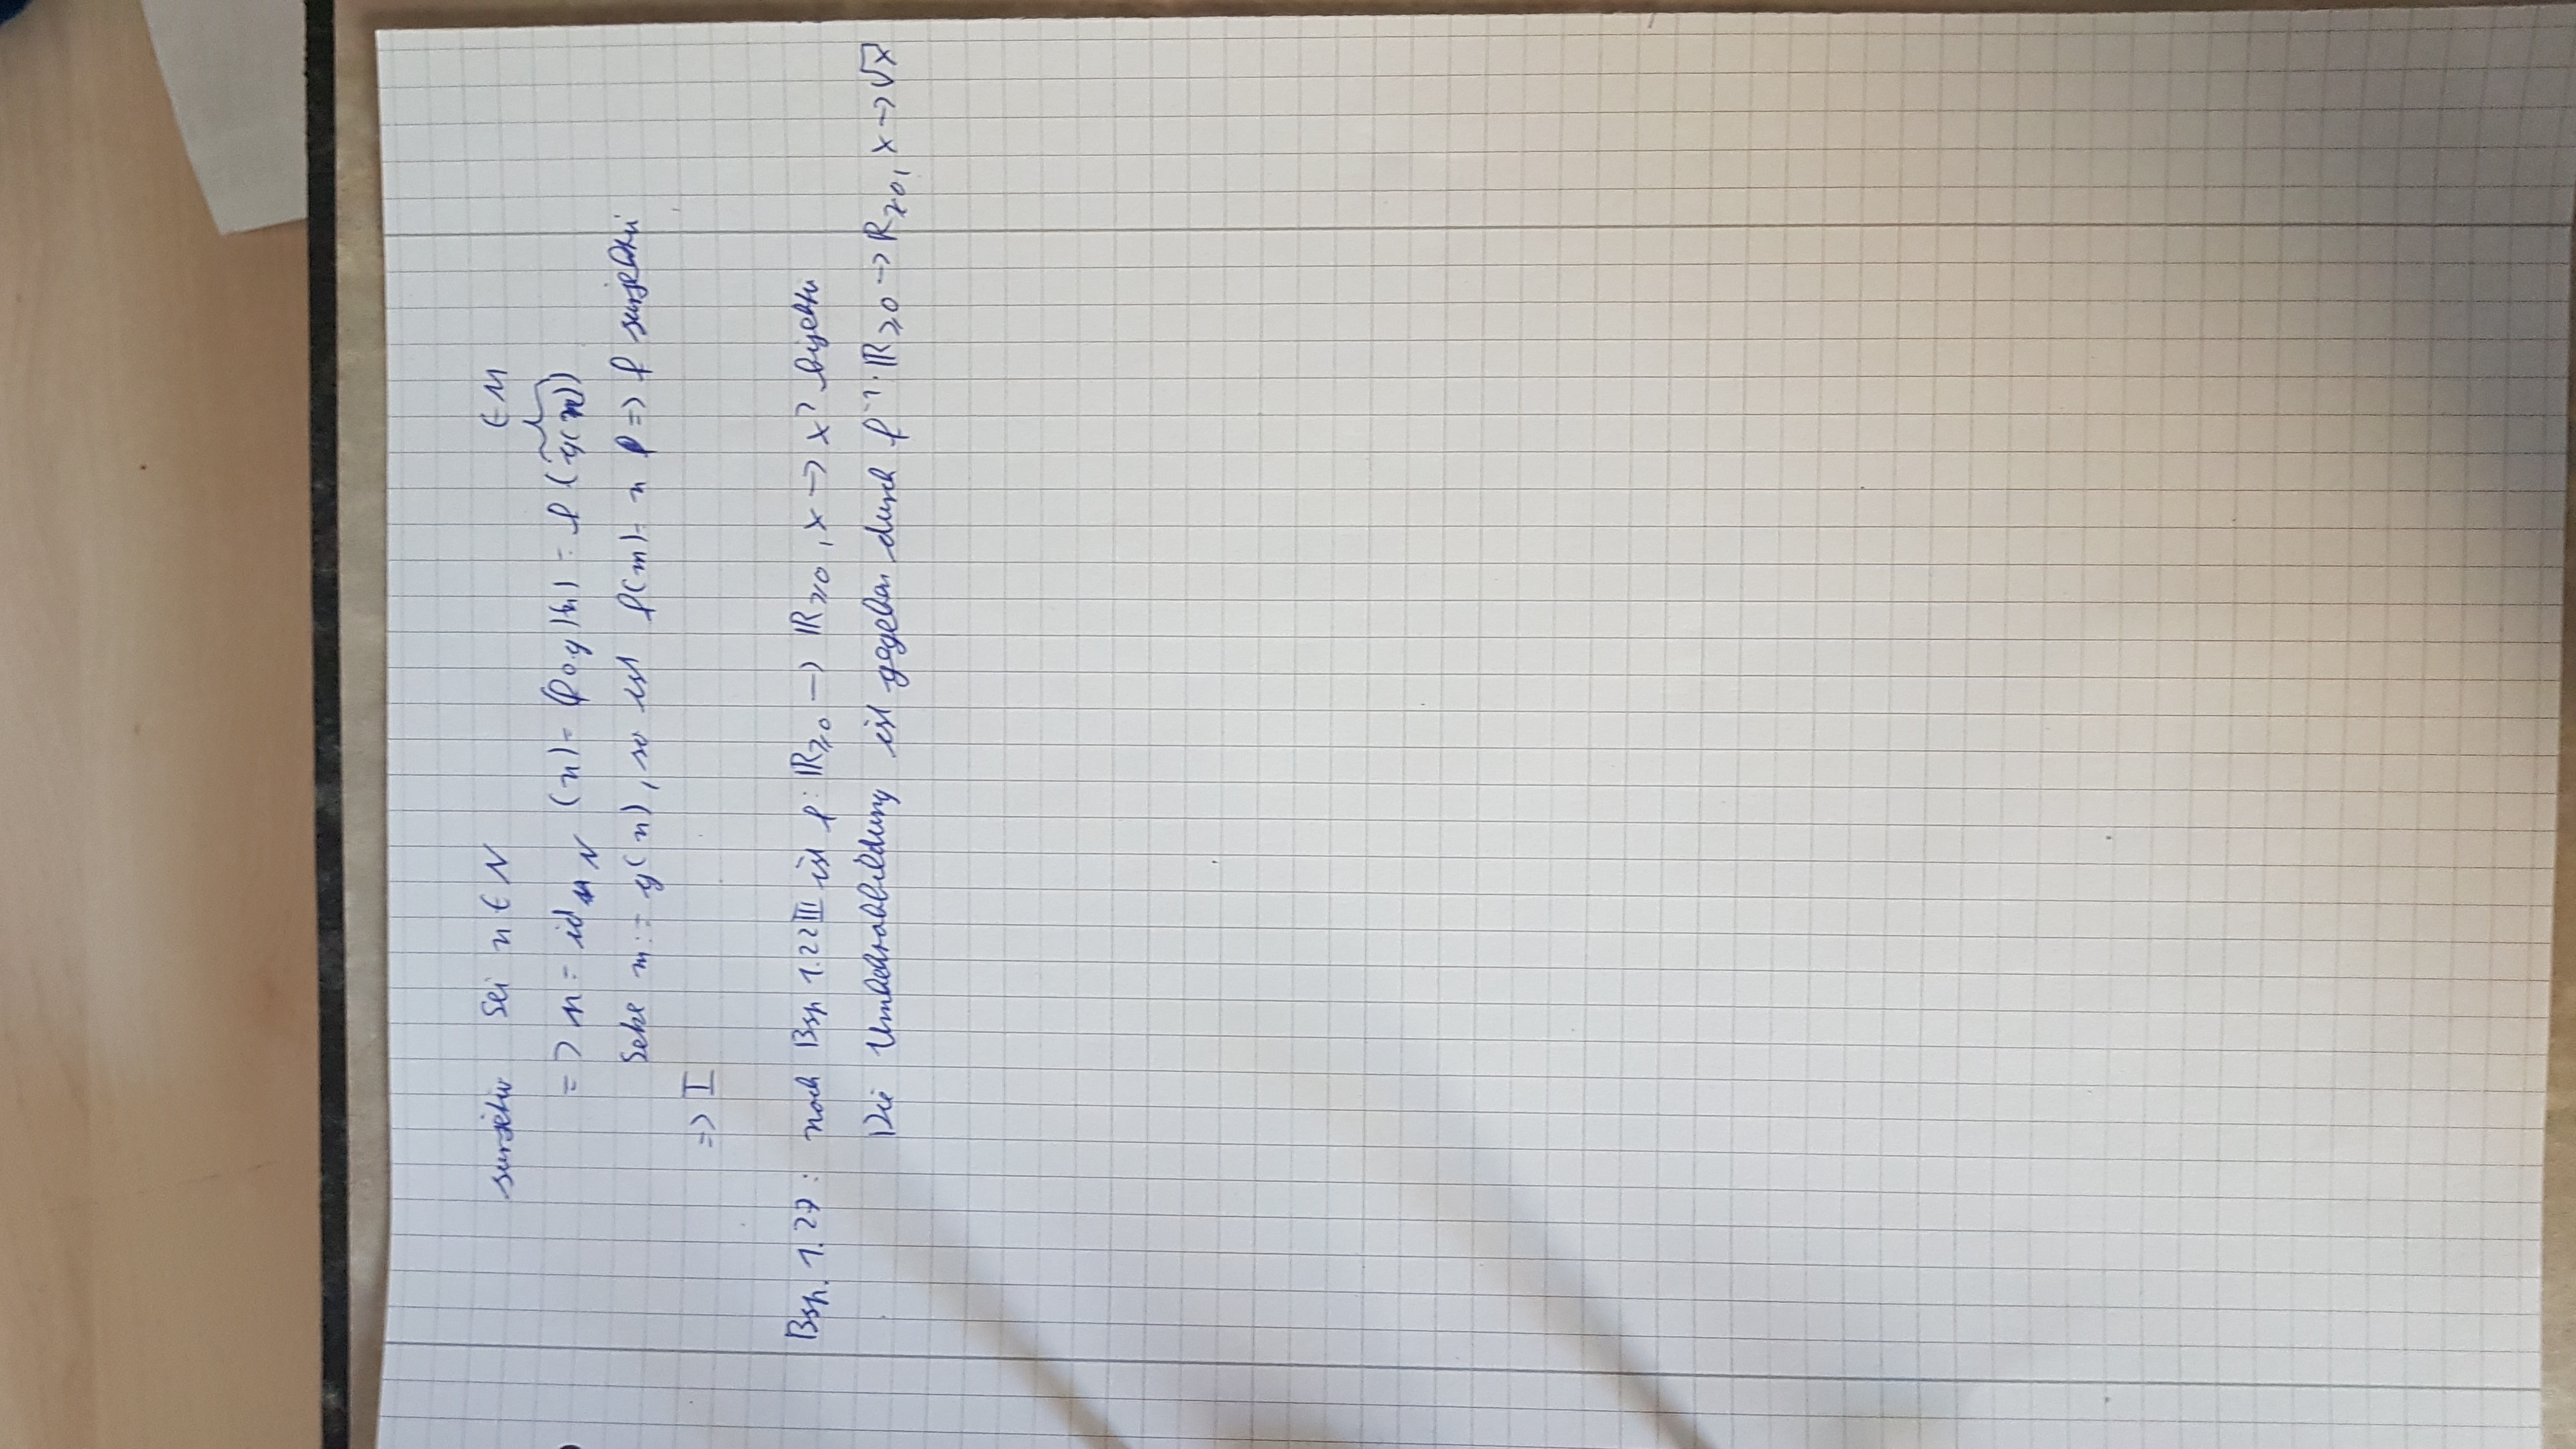 surjektiv Sei n ∈ N ∈ M
=> n = id_N (n) = (f∘g)(n) = f(g(n))
Setze m := g(n), so ist f(m) = n => f surjektiv
=> I
Bsp. 1.27: nach Bsp 1.22 III ist f: ℝ≥0 -> ℝ≥0, x -> x² bijektiv
Die Umkehrabbildung ist gegeben durch f⁻¹: ℝ≥0 -> ℝ≥0, x -> √x